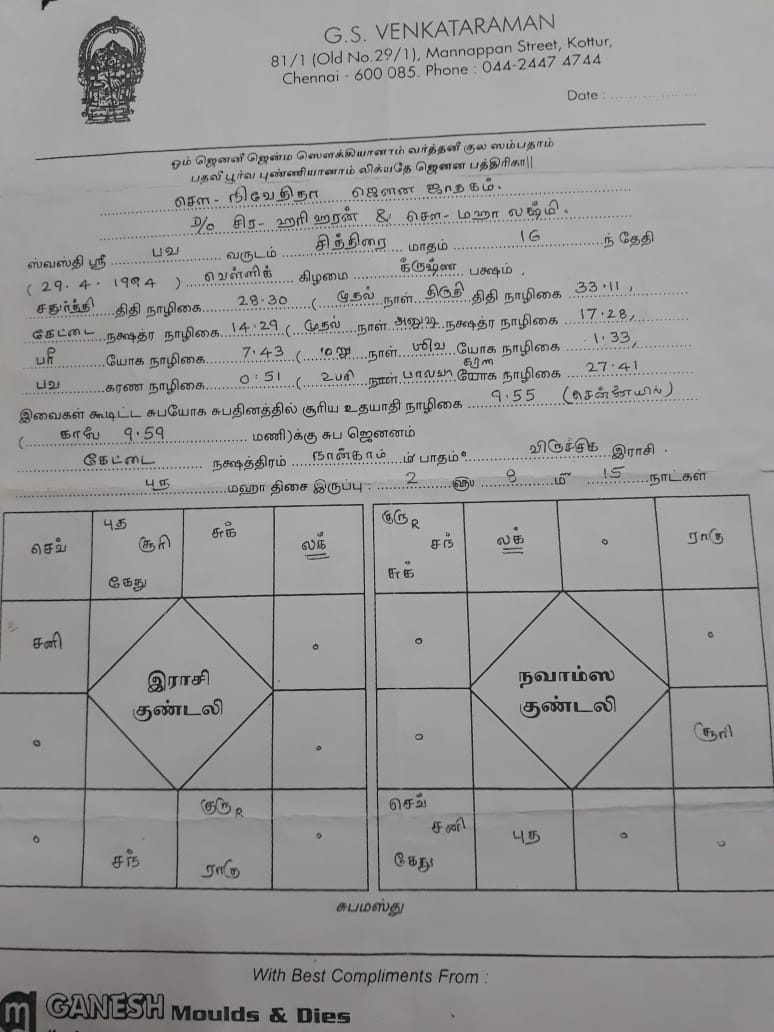 G.S. VENKATARAMAN
81/1 (Old No.29/1), Mannappan Street, Kottur,
Chennai - 600 085. Phone : 044-2447 4744
Date :
ஓம் ஜெனனீ ஜென்ம ஸௌக்கியானாம் வர்த்தனீ குல ஸம்பதாம்
பதவீ பூர்வ புண்ணியானாம் லிக்யதே ஜெனன பத்திரிகா||
சௌ- நிவேதிதா ஜெனன ஜாதகம்.
D/o சிர- ஹரிஹரன் & சௌ- மஹா லக்ஷ்மி.
ஸ்வஸ்தி ஸ்ரீ பவ வருடம் சித்திரை மாதம் 16 ந் தேதி
(29.4.1994) வெள்ளிக் கிழமை க்ருஷ்ண பக்ஷம்,
சதுர்த்தி திதி நாழிகை 28.30 (முதல் நாள் திருதி திதி நாழிகை 33.11,
கேட்டை நக்ஷத்ர நாழிகை 14.29 (முதல் நாள் அனுஷ நக்ஷத்ர நாழிகை 17.28,
பரீ யோக நாழிகை 7.43 (மறு நாள் ஶிவ யோக நாழிகை 1.33,
பவ கரண நாழிகை 0.51 (உபரி நாள் பாலவ கரண யோக நாழிகை 27.41
இவைகள் கூடிட்ட சுபயோக சுபதினத்தில் சூரிய உதயாதி நாழிகை 9.55 (சென்னையில்)
(காலை 9.59 மணி)க்கு சுப ஜெனனம்
கேட்டை நக்ஷத்திரம் நான்காம் ம் பாதம் விருச்சிக இராசி
புத மஹா திசை இருப்பு : 2 ௵ 9 ௴ 15 நாட்கள்
செவ்
புத
சூரி
கேது
சுக்
லக்
குரு R
சந்
சுக்
லக்
ராகு
சனி
இராசி
குண்டலி
நவாம்ஸ
குண்டலி
சூரி
சந்
குரு R
ராகு
செவ்
சனி
கேது
புத
சுபமஸ்து
With Best Compliments From :
GANESH Moulds & Dies